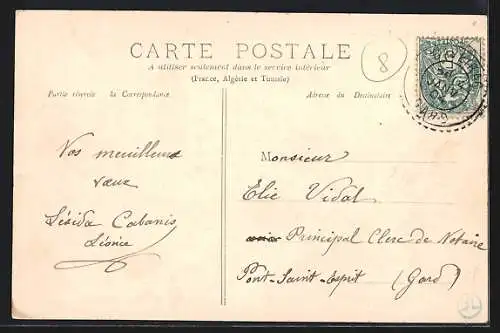 CARTE POSTALE
A utiliser seulement dans le service intérieur
(France, Algérie et Tunisie)
Partie réservée à la Correspondance
Adresse du Destinataire
8
Nos meilleurs
vœux
Lésida Cabanis
Léonie
Monsieur
Elie Vidal
Principal Clerc de Notaire
Pont-Saint-Esprit (Gard)